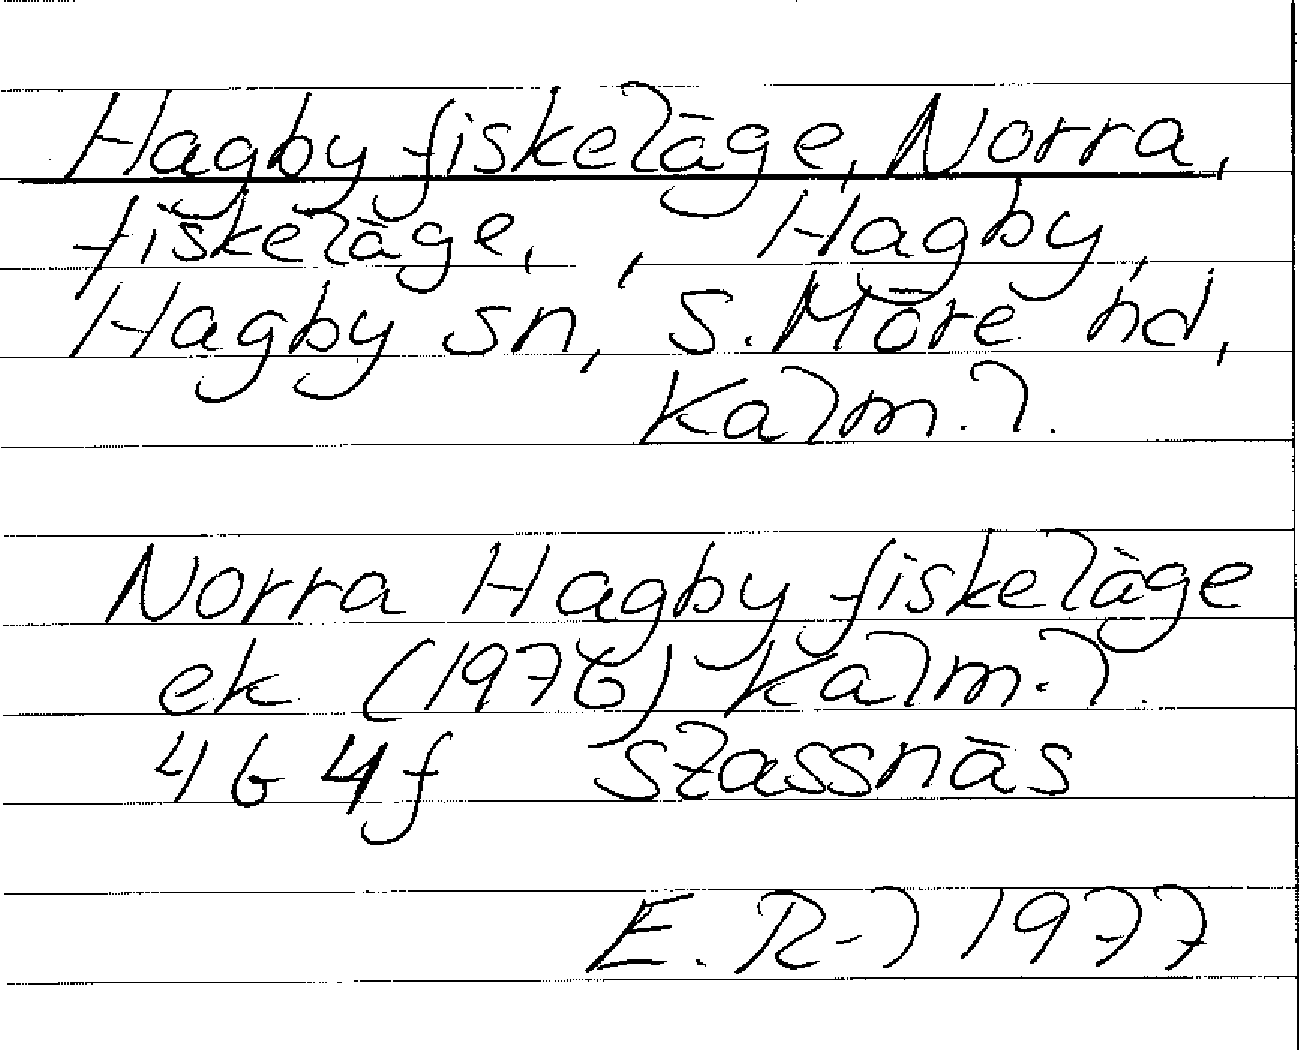 Hagby fiskeläge, Norra,
fiskeläge, , Hagby,
Hagby sn, S. Möre hd,
Kalm. l.
Norra Hagby fiskeläge
ek (1976) Kalm. l.
4G 4f
E. R-l 1977